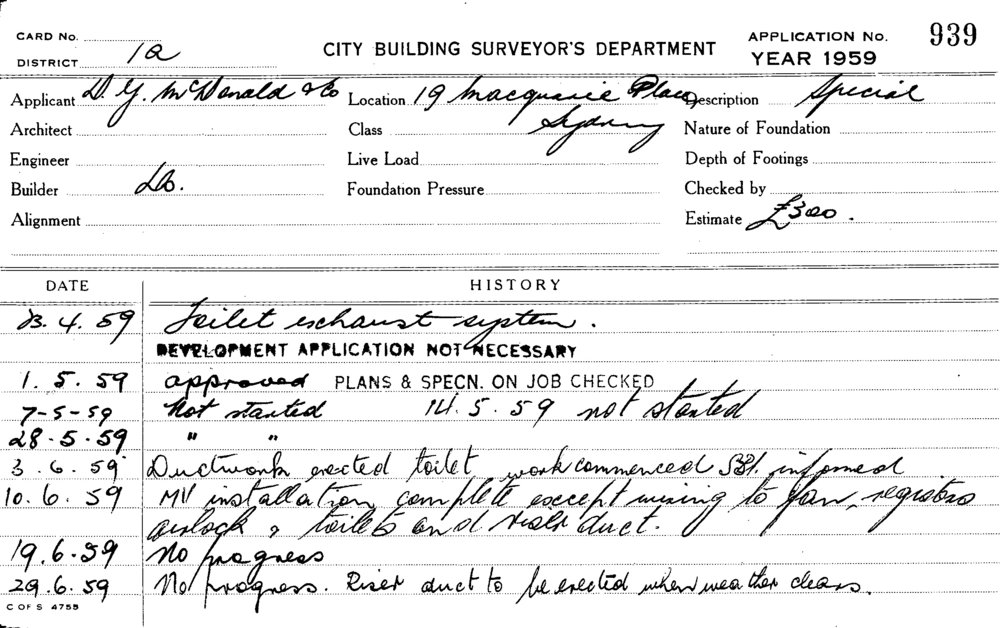 CARD No.
DISTRICT 1a
CITY BUILDING SURVEYOR'S DEPARTMENT
APPLICATION No. 939
YEAR 1959
Applicant D. Y. McDonald & Co Location 19 Macquarie Place Description Special
Architect Class Sydney Nature of Foundation
Engineer Live Load Depth of Footings
Builder Do. Foundation Pressure Checked by
Alignment Estimate £300.
DATE HISTORY
23. 4. 59 Toilet exhaust system.
DEVELOPMENT APPLICATION NOT NECESSARY
1. 5. 59 approved PLANS & SPECN. ON JOB CHECKED
7-5-59 Not started 14.5.59 not started
28.5.59 " "
3.6.59 Ductwork erected toilet work commenced informed
10.6.59 MV installation complete except wiring to fan, registers
airlock & toilets and riser duct.
19.6.59 No progress
29.6.59 No progress. Riser duct to be erected when weather clears.
C OF S 4755